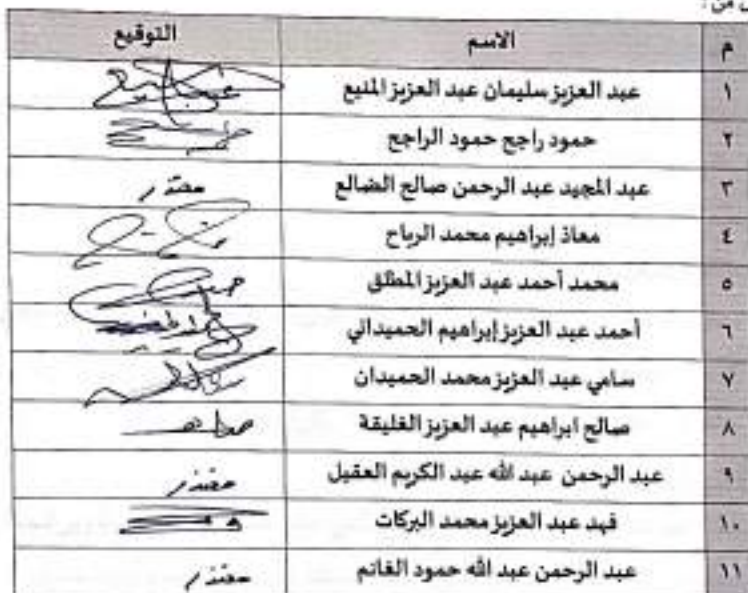 م الاسم التوقيع
١ عبد العزيز سليمان عبد العزيز المنيع
٢ حمود راجح حمود الراجح
٣ عبد المجيد عبد الرحمن صالح الضالع معتذر
٤ معاذ إبراهيم محمد الرباح
٥ محمد أحمد عبد العزيز المطلق
٦ أحمد عبد العزيز إبراهيم الحميداني
٧ سامي عبد العزيز محمد الحميدان
٨ صالح ابراهيم عبد العزيز الغليقة
٩ عبد الرحمن عبد الله عبد الكريم العقيل معتذر
١٠ فهد عبد العزيز محمد البركات
١١ عبد الرحمن عبد الله حمود الغانم معتذر